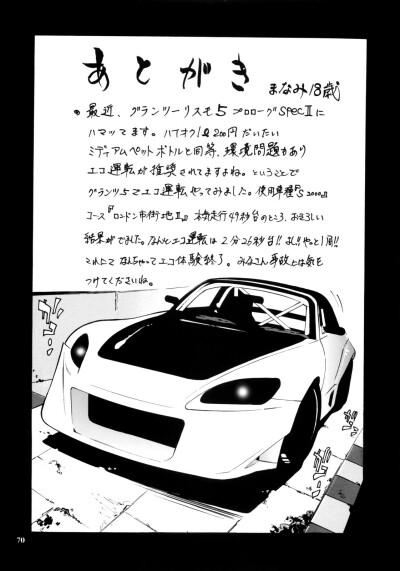 あとがき
まなみ18歳
最近、グランツーリスモ5 プロローグSpecⅢに
ハマッてます。ハイオク1ℓ200円だいたい
ミディアムペットボトルと同等、環境問題もあり
エコ運転が推奨されてますよね。ということで
グランツ5でエコ運転やってみました。使用車種『S2000』
コース『ロンドン市街地Ⅱ』本気走行49秒台のところ、おそろしい
結果がでました。なんとエコ運転は2分26秒台!!よし!!やっと1周!!
これにて なんちゃってエコ体験終了。みなさん事故には気を
つけてくださいね。
70